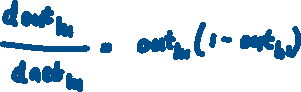 d out_h1 / d net_h1 = out_h1 (1 - out_h1)